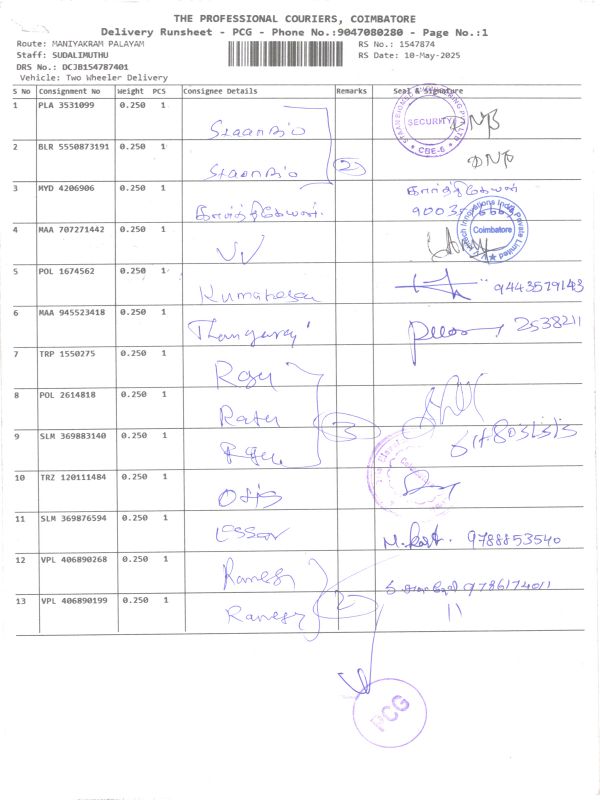 THE PROFESSIONAL COURIERS, COIMBATORE
Delivery Runsheet - PCG - Phone No.:9047080280 - Page No.:1
Route: MANIYAKRAM PALAYAM RS No.: 1547874
Staff: SUDALIMUTHU RS Date: 10-May-2025
DRS No.: DCJB154787401
Vehicle: Two Wheeler Delivery
S No Consignment No Weight PCS Consignee Details Remarks Seal & Signature
1 PLA 3531099 0.250 1
SECURITY
CBE-6
2 BLR 5550873191 0.250 1 2
3 MYD 4206906 0.250 1 கார்த்திகேயன். கார்த்திகேயன்
4 MAA 707271442 0.250 1 VV
Coimbatore
5 POL 1674562 0.250 1 9443579143
6 MAA 945523418 0.250 1 Thangaraj 2538211
7 TRP 1550275 0.250 1
8 POL 2614818 0.250 1
9 SLM 369883140 0.250 1 3
10 TRZ 120111484 0.250 1 Otis
11 SLM 369876594 0.250 1 9788853540
12 VPL 406890268 0.250 1 Ramesh 9786174011
13 VPL 406890199 0.250 1 Ramesh 2 11
PCG